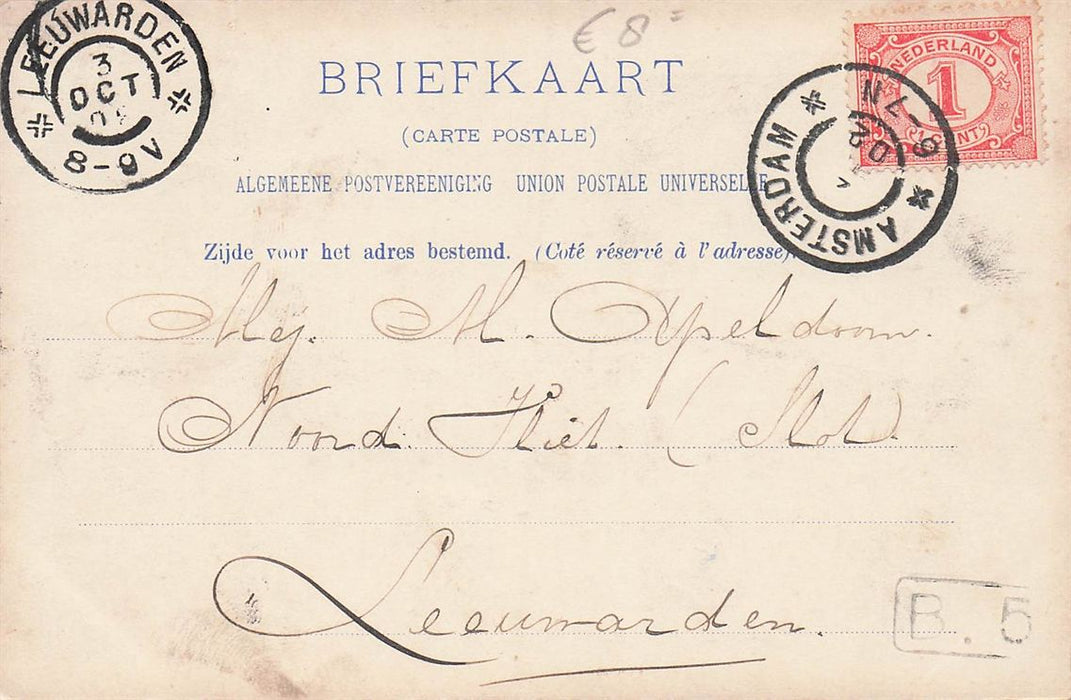 LEEUWARDEN
3
OCT
8-9V
€ 8
BRIEFKAART
(CARTE POSTALE)
ALGEMEENE POSTVEREENIGING UNION POSTALE UNIVERSELLE
Zijde voor het adres bestemd. (Coté réservé à l'adresse).
NEDERLAND
1
CENT
AMSTERDAM
6-7N
Mej. M. Apeldoorn.
Noord Vliet. (Slot
Leeuwarden.
B. 5